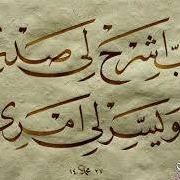 ب اشرح لي صدر
ويسر لي امري